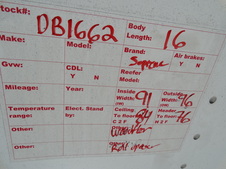 Stock#: DB1662
Body Length: 16
Make:
Model:
Brand: Supreme
Air brakes: Y N
Gvw:
CDL: Y N
Reefer Model:
Mileage:
Year:
Inside Width: 91
Outside Width: 96
Temperature range:
Elect. Stand by:
Ceiling To floor: 84
Header To floor: 76
Other:
Other: